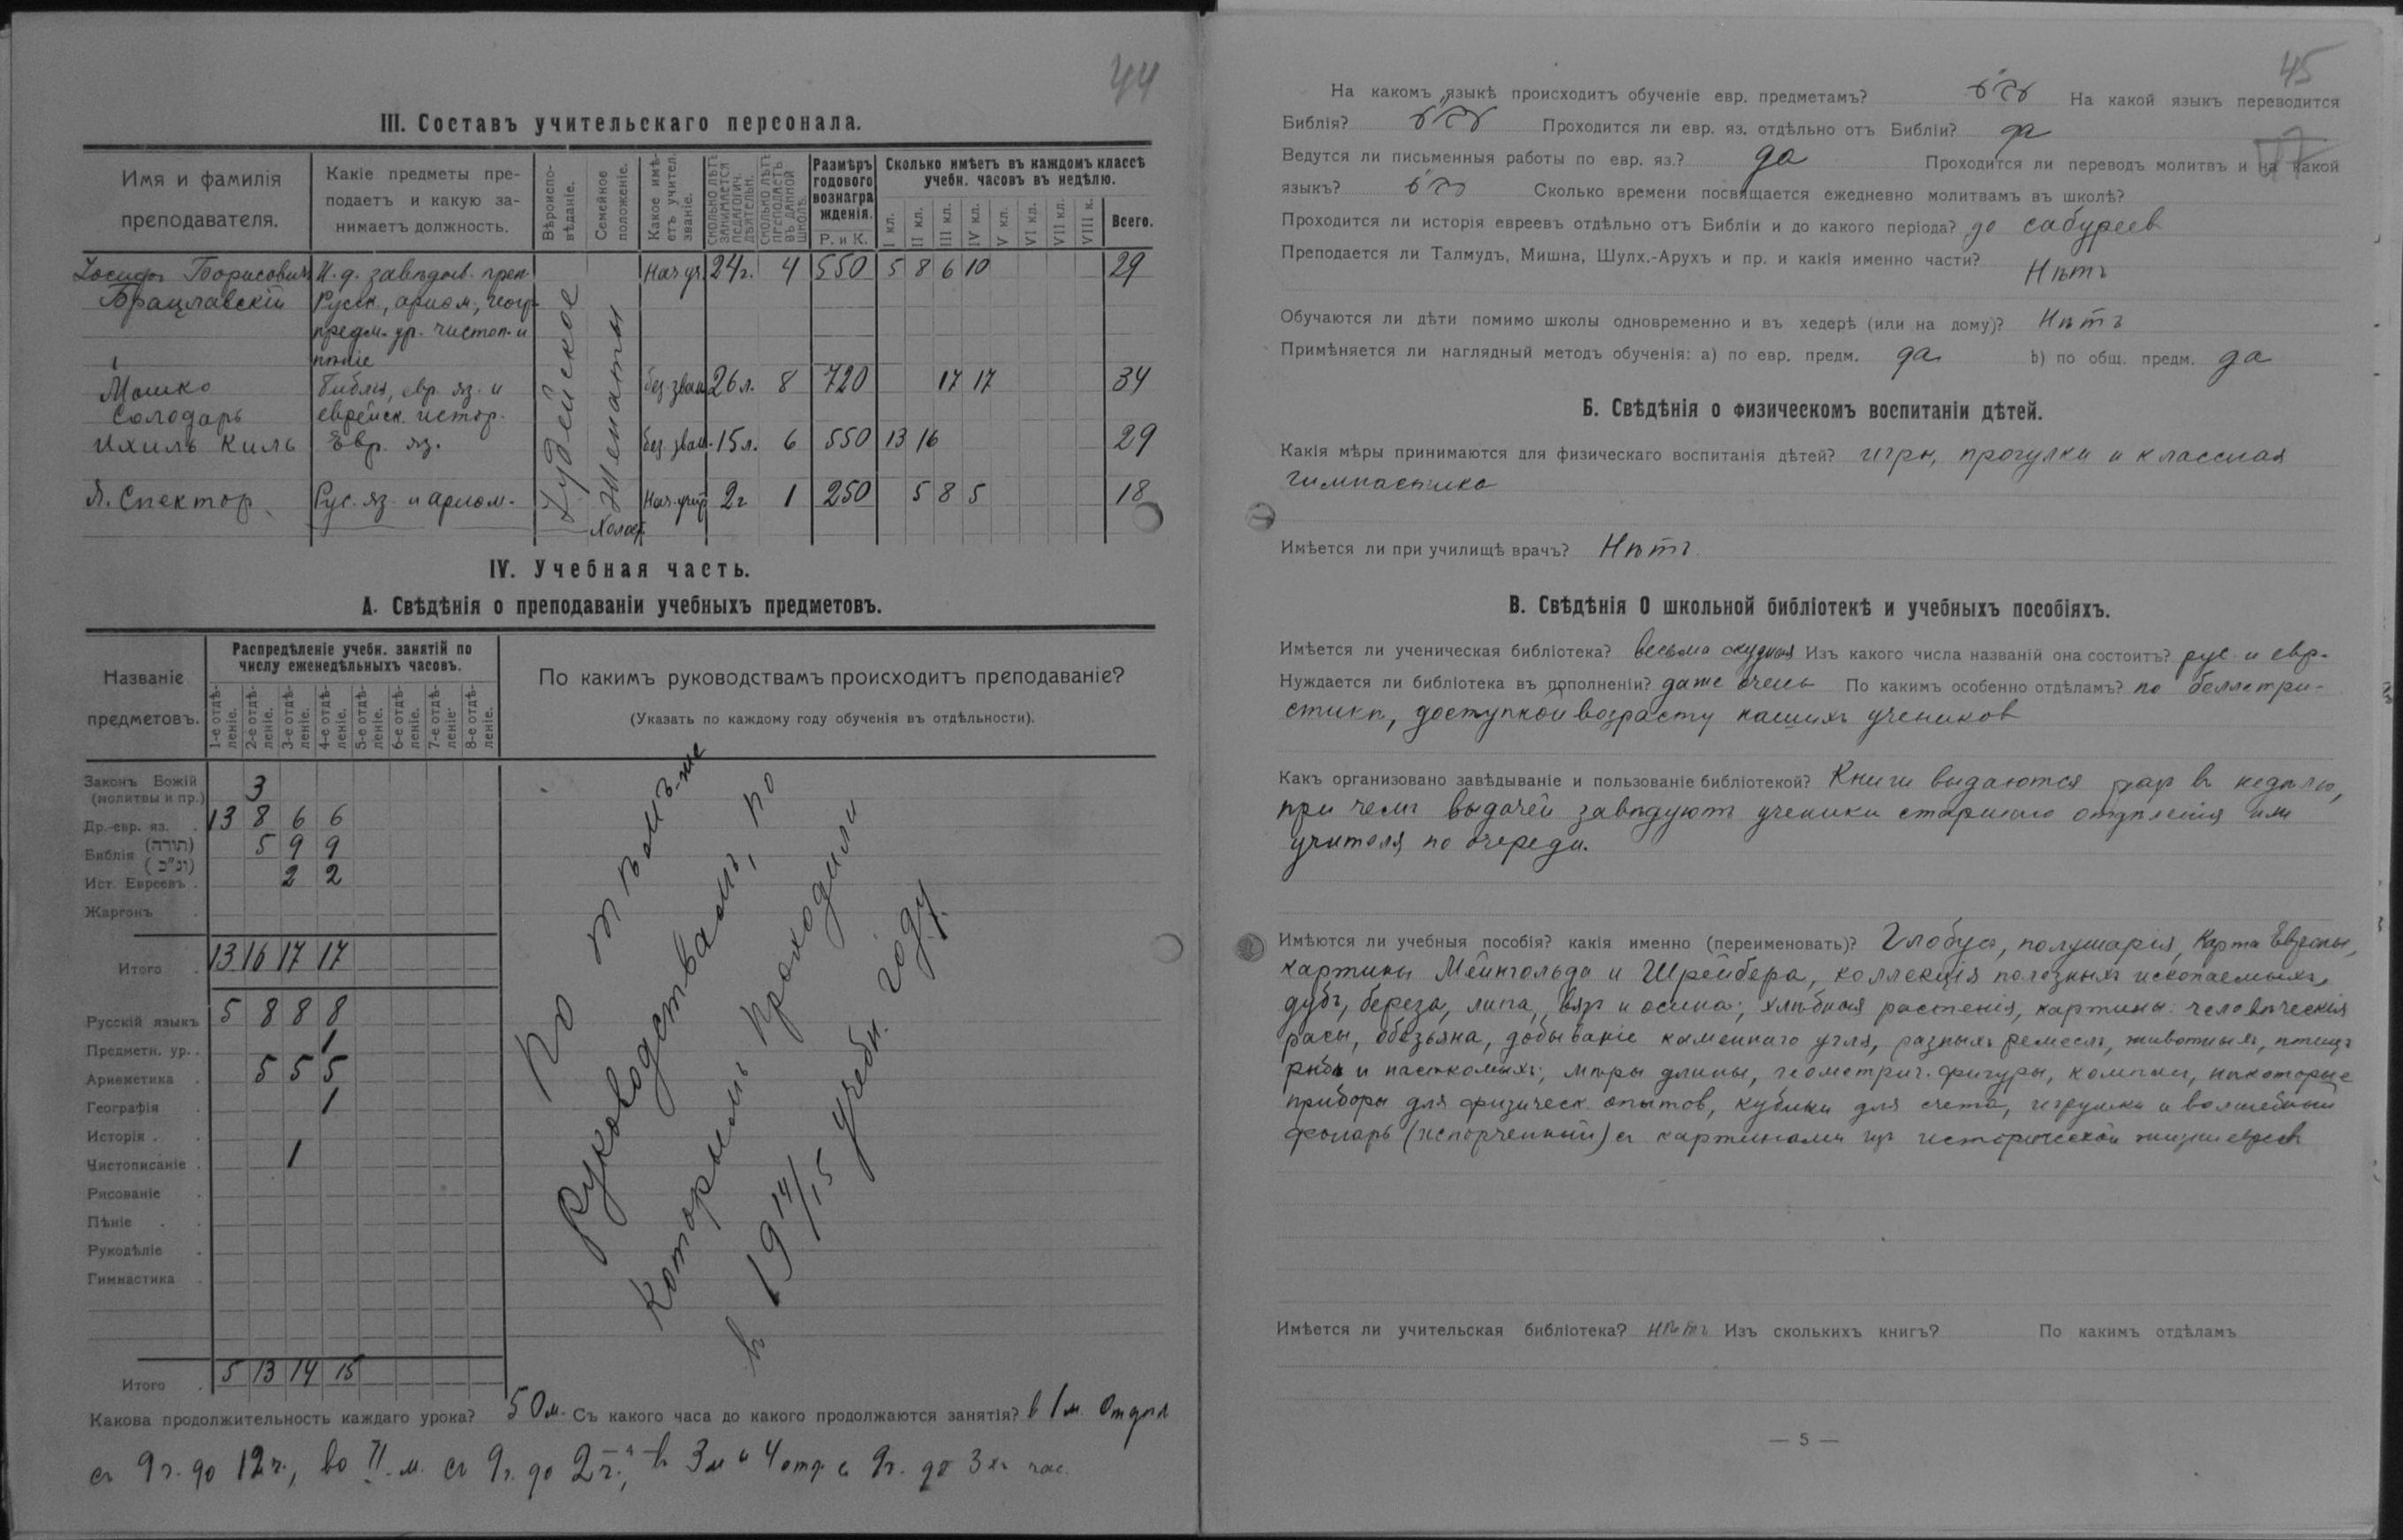 44
III. Составъ учительскаго персонала.
Имя и фамилія преподавателя.
Какіе предметы преподаетъ и какую занимаетъ должность.
Вѣроисповѣданіе.
Семейное положеніе.
Какое имѣетъ учител. званіе.
Сколько лѣтъ занимается педагогич. дѣятельн.
Сколько лѣтъ преподастъ въ данной школѣ.
Размѣръ годового вознагражденія.
Р. и К.
Сколько имѣетъ въ каждомъ классѣ учебн. часовъ въ недѣлю.
I кл. II кл. III кл. IV кл. V кл. VI кл. VII кл. VIII к. Всего.
Борисович И. д. завѣдыв. преп. Нач. уч. 24 г. 4 550 5 8 6 10 29
Брацлавскій Русск., ариѳм., геогр.
предм. ур. чистоп. и
пѣніе
Мошко Библія, евр. яз. и без. зван. 26 л. 8 720 17 17 34
Солодарь еврейск. истор.
Ихиль Киль Евр. яз. без. зван. 15 л. 6 550 13 16 29
Я. Спектор Рус. яз. и ариѳм. Нач. учит. 2 г 1 250 5 8 5 18
Іудейское
Женаты
Холост.
IV. Учебная часть.
А. Свѣдѣнія о преподаваніи учебныхъ предметовъ.
Названіе предметовъ.
Распредѣленіе учебн. занятій по числу еженедѣльныхъ часовъ.
1-е отдѣленіе. 2-е отдѣленіе. 3-е отдѣленіе. 4-е отдѣленіе. 5-е отдѣленіе. 6-е отдѣленіе. 7-е отдѣленіе. 8-е отдѣленіе.
По какимъ руководствамъ происходитъ преподаваніе?
(Указать по каждому году обученія въ отдѣльности).
Законъ Божій 3
(молитвы и пр.)
Др.-евр. яз. 13 8 6 6
Библія (תורה) 5 9 9
(נ"כ)
Ист. Евреевъ 2 2
Жаргонъ
Итого 13 16 17 17
Русскій языкъ 5 8 8 8
Предметн. ур. 1
Ариѳметика 5 5 5
Географія 1
Исторія
Чистописаніе 1
Рисованіе
Пѣніе
Рукодѣліе
Гимнастика
Итого 5 13 14 15
По тѣмъ-же
руководствамъ, по
которымъ проходили
в 1914/15 учебн. году.
Какова продолжительность каждаго урока? 50 м. Съ какого часа до какого продолжаются занятія? в 1 м. отдѣл
съ 9 ч. до 12 ч., во II м. съ 9 ч. до 2 ч., в 3 м и 4 отд. с 9 ч. до 3 х час.
45
На какомъ языкѣ происходитъ обученіе евр. предметамъ? На какой языкъ переводится
Библія? Проходится ли евр. яз. отдѣльно отъ Библіи? да
Ведутся ли письменныя работы по евр. яз.? да Проходится ли переводъ молитвъ и на какой
языкъ? Сколько времени посвящается ежедневно молитвамъ въ школѣ?
Проходится ли исторія евреевъ отдѣльно отъ Библіи и до какого періода? до сабуреев
Преподается ли Талмудъ, Мишна, Шулх.-Арухъ и пр. и какія именно части?
Нѣтъ
Обучаются ли дѣти помимо школы одновременно и въ хедерѣ (или на дому)? Нѣтъ
Примѣняется ли наглядный методъ обученія: а) по евр. предм. да b) по общ. предм. да
Б. Свѣдѣнія о физическомъ воспитаніи дѣтей.
Какія мѣры принимаются для физическаго воспитанія дѣтей? игры, прогулки и классная
гимнастика
Имѣется ли при училищѣ врачъ? Нѣтъ
В. Свѣдѣнія О школьной библіотекѣ и учебныхъ пособіяхъ.
Имѣется ли ученическая библіотека? весьма скудная Изъ какого числа названій она состоитъ? рус. и евр.
Нуждается ли библіотека въ пополненіи? даже очень По какимъ особенно отдѣламъ? по беллетри-
стикѣ, доступной возрасту нашихъ учеников
Какъ организовано завѣдываніе и пользованіе библіотекой? Книги выдаются раз в недѣлю,
при чемъ выдачей завѣдуютъ ученики старшаго отдѣленія или
учителя по очереди.
Имѣются ли учебныя пособія? какія именно (переименовать)? Глобус, полушарія, Карта Европы,
картины Мейнгольда и Шрейбера, коллекція полезныхъ ископаемыхъ,
дубъ, береза, липа, вяз и осина; хлѣбныя растенія, картины: человѣческія
расы, обезьяна, добываніе каменнаго угля, разныхъ ремеслъ, животныхъ, птицъ
рыбъ и насѣкомыхъ; мѣры длины, геометрич. фигуры, компасъ, нѣкоторые
приборы для физическ. опытов, кубики для счета, игрушки и волшебный
фонарь (испорченный) съ картинами из исторической жизни евреев
Имѣется ли учительская библіотека? нѣтъ Изъ сколькихъ книгъ? По какимъ отдѣламъ
— 5 —